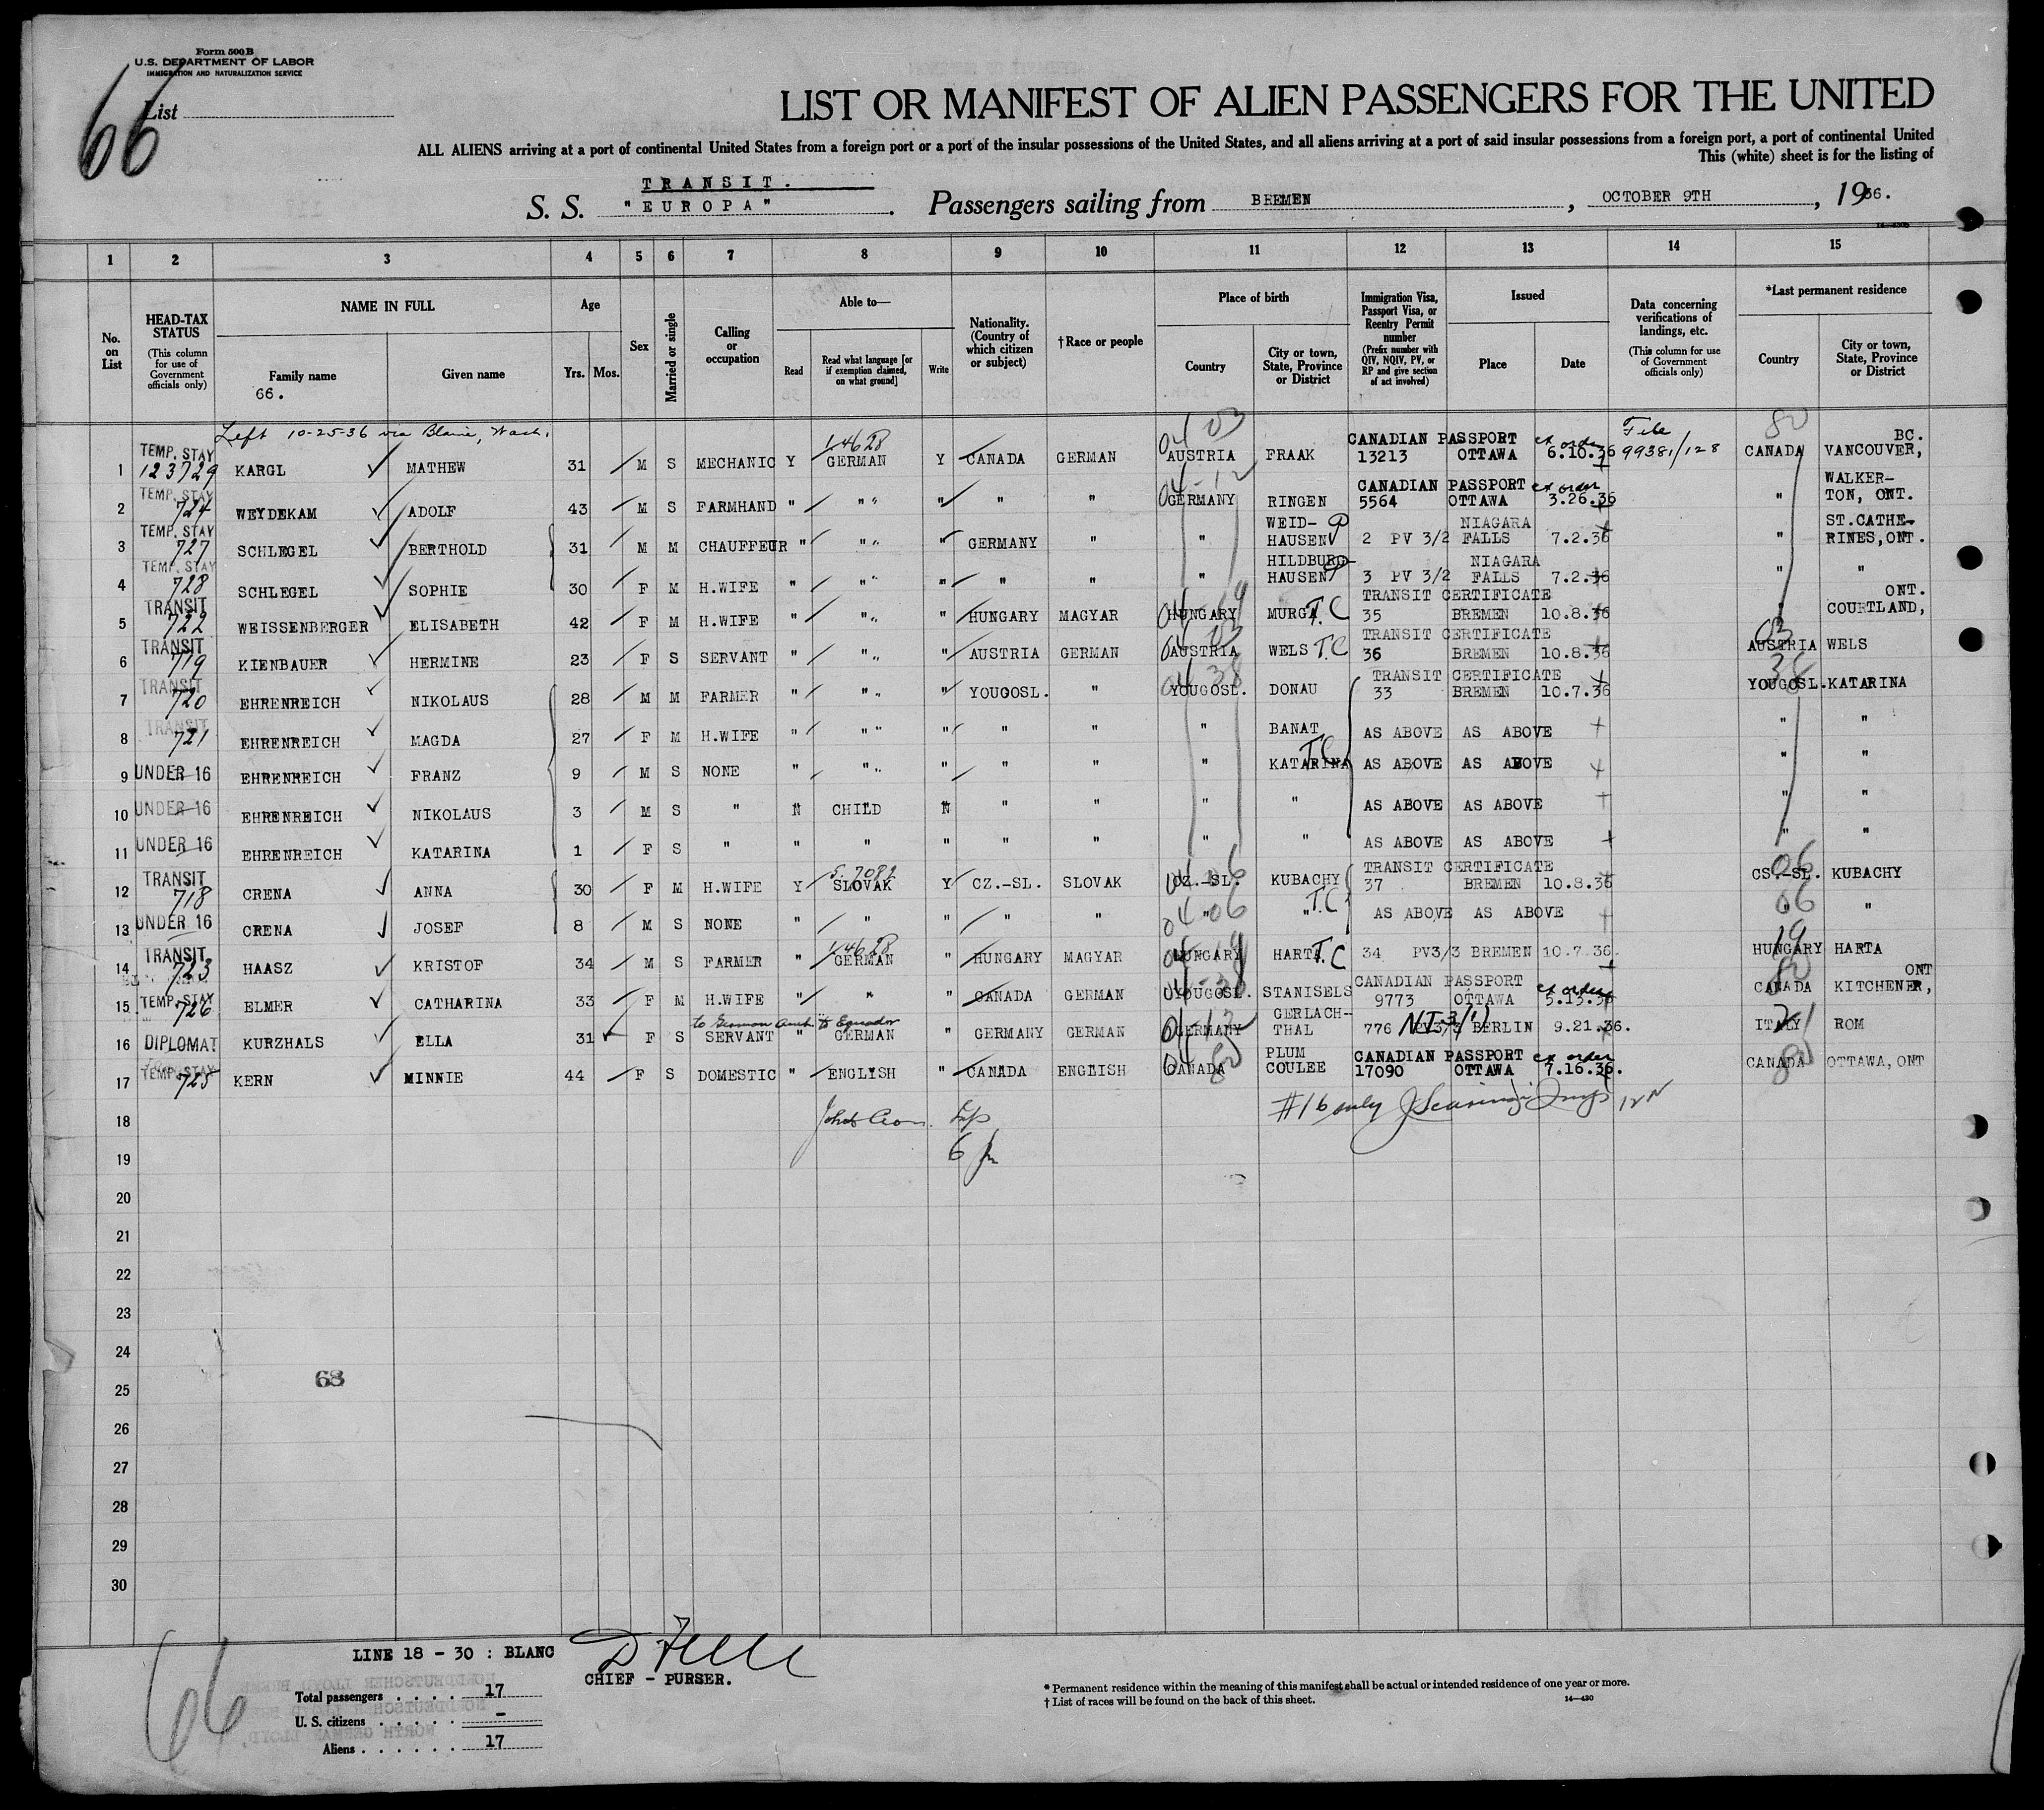 Form 500B
U.S. DEPARTMENT OF LABOR
IMMIGRATION AND NATURALIZATION SERVICE
66
List
LIST OR MANIFEST OF ALIEN PASSENGERS FOR THE UNITED
ALL ALIENS arriving at a port of continental United States from a foreign port or a port of the insular possessions of the United States, and all aliens arriving at a port of said insular possessions from a foreign port, a port of continental United
This (white) sheet is for the listing of
TRANSIT.
S. S. "EUROPA". Passengers sailing from BREMEN, OCTOBER 9TH, 1936.
1 2 3 4 5 6 7 8 9 10 11 12 13 14 15
No. on List
HEAD-TAX STATUS (This column for use of Government officials only)
NAME IN FULL
Family name
66.
Given name
Age
Yrs. Mos.
Sex
Married or single
Calling or occupation
Able to—
Read
Read what language [or if exemption claimed, on what ground]
Write
Nationality. (Country of which citizen or subject)
†Race or people
Place of birth
Country
City or town, State, Province or District
Immigration Visa, Passport Visa, or Reentry Permit number (Prefix number with QIV, NQIV, PV, or RP and give section of act involved)
Issued
Place
Date
Data concerning verifications of landings, etc. (This column for use of Government officials only)
*Last permanent residence
Country
City or town, State, Province or District
Left 10-25-36 via Blaine, Wash.
1 TEMP. STAY 123729 KARGL MATHEW 31 M S MECHANIC Y 14628 GERMAN Y CANADA GERMAN 04 03 AUSTRIA FRAAK CANADIAN PASSPORT 13213 OTTAWA ex order 6.10.36 File 99381/128 80 CANADA VANCOUVER, BC.
2 TEMP. STAY 724 WEYDEKAM ADOLF 43 M S FARMHAND " " " " " " 04-12 GERMANY RINGEN CANADIAN PASSPORT 5564 OTTAWA ex order 3.26.36 " WALKER-TON, ONT.
3 TEMP. STAY 727 SCHLEGEL BERTHOLD 31 M M CHAUFFEUR " " " " GERMANY " " WEID-HAUSEN 2 PV 3/2 NIAGARA FALLS 7.2.36 " ST.CATHE-RINES, ONT.
4 TEMP. STAY 728 SCHLEGEL SOPHIE 30 F M H.WIFE " " " " " " " HILDBURG-HAUSEN 3 PV 3/2 NIAGARA FALLS 7.2.36 " "
5 TRANSIT 722 WEISSENBERGER ELISABETH 42 F M H.WIFE " " " " HUNGARY MAGYAR 04 19 HUNGARY MURGA T.C TRANSIT CERTIFICATE 35 BREMEN 10.8.36 " COURTLAND, ONT.
6 TRANSIT 719 KIENBAUER HERMINE 23 F S SERVANT " " " " AUSTRIA GERMAN 04 03 AUSTRIA WELS T.C TRANSIT CERTIFICATE 36 BREMEN 10.8.36 03 AUSTRIA WELS
7 TRANSIT 720 EHRENREICH NIKOLAUS 28 M M FARMER " " " " YOUGOSL. " 04 38 YOUGOSL. DONAU TRANSIT CERTIFICATE 33 BREMEN 10.7.36 38 YOUGOSL. KATARINA
8 TRANSIT 721 EHRENREICH MAGDA 27 F M H.WIFE " " " " " " " BANAT, AS ABOVE AS ABOVE " "
9 UNDER 16 EHRENREICH FRANZ 9 M S NONE " " " " " " " KATARINA T.C AS ABOVE AS ABOVE " "
10 UNDER 16 EHRENREICH NIKOLAUS 3 M S " N CHILD N " " " " AS ABOVE AS ABOVE " "
11 UNDER 16 EHRENREICH KATARINA 1 F S " " " " " " " " AS ABOVE AS ABOVE " "
12 TRANSIT 718 CRENA ANNA 30 F M H.WIFE Y SLOVAK Y CZ.-SL. SLOVAK 04 06 CZ.-SL. KUBACHY TRANSIT CERTIFICATE 37 BREMEN 10.8.36 06 CS.-SL. KUBACHY
13 UNDER 16 CRENA JOSEF 8 M S NONE " " " " " 04 06 " " T.C AS ABOVE AS ABOVE 06 " "
14 TRANSIT 723 HAASZ KRISTOF 34 M S FARMER " 14628 GERMAN " HUNGARY MAGYAR 04 19 HUNGARY HARTA T.C 34 PV3/3 BREMEN 10.7.36. 19 HUNGARY HARTA
15 TEMP. STAY 726 ELMER CATHARINA 33 F M H.WIFE " " " CANADA GERMAN 04-38 YOUGOSL. STANISELS CANADIAN PASSPORT 9773 OTTAWA ex order 5.13.36 80 CANADA KITCHENER, ONT
16 DIPLOMAT KURZHALS ELLA 31 F S SERVANT to German Amb. to Equador " GERMAN " GERMANY GERMAN 04-12 GERMANY GERLACH-THAL 776 PV3/3 BERLIN 9.21.36. 21 ITALY ROM
17 TEMP. STAY 725 KERN MINNIE 44 F S DOMESTIC " ENGLISH " CANADA ENGLISH 04 80 CANADA PLUM COULEE CANADIAN PASSPORT 17090 OTTAWA ex order 7.16.36. 80 CANADA OTTAWA, ONT
18 #16 only
19
20
21
22
23
24
25
26
27
28
29
30
68
LINE 18 - 30 : BLANC
CHIEF - PURSER.
66
Total passengers . . . . 17
U. S. citizens . . . . . -
Aliens . . . . . . 17
* Permanent residence within the meaning of this manifest shall be actual or intended residence of one year or more.
† List of races will be found on the back of this sheet.
14—420